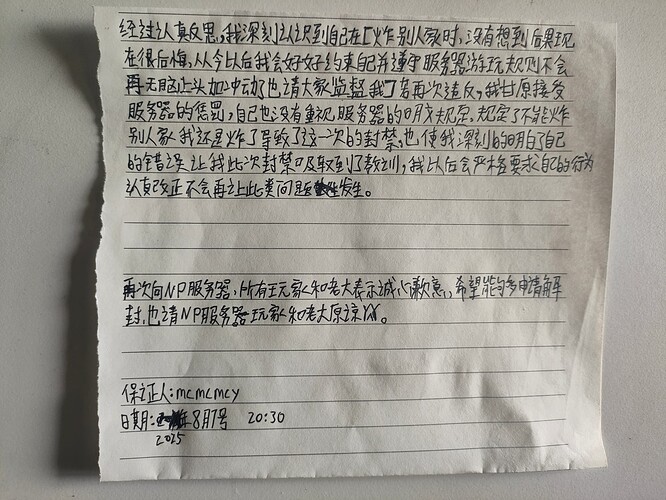 经过认真反思,我深刻认识到自己在炸别人家时,没有想到后果现
在很后悔,从今以后我会好好约束自己并遵守服务器游玩规则不会
再无脑上头加冲动了也请大家监督我了若再次违反,我甘愿接受
服务器的惩罚,自己也没有重视服务器的明文规定,规定了不能炸
别人家我还是炸了导致了这一次的封禁,也使我深刻的明白了自己
的错误让我此次封禁吸取到了教训,我以后会严格要求自己的行为
认真改正不会再让此类问题发生。
再次向NP服务器,所有玩家和老大表示诚心歉意,希望能够申请解
封,也请NP服务器玩家和老大原谅。
保证人:mcmcmcy
日期: 8月7号 20:30
2025